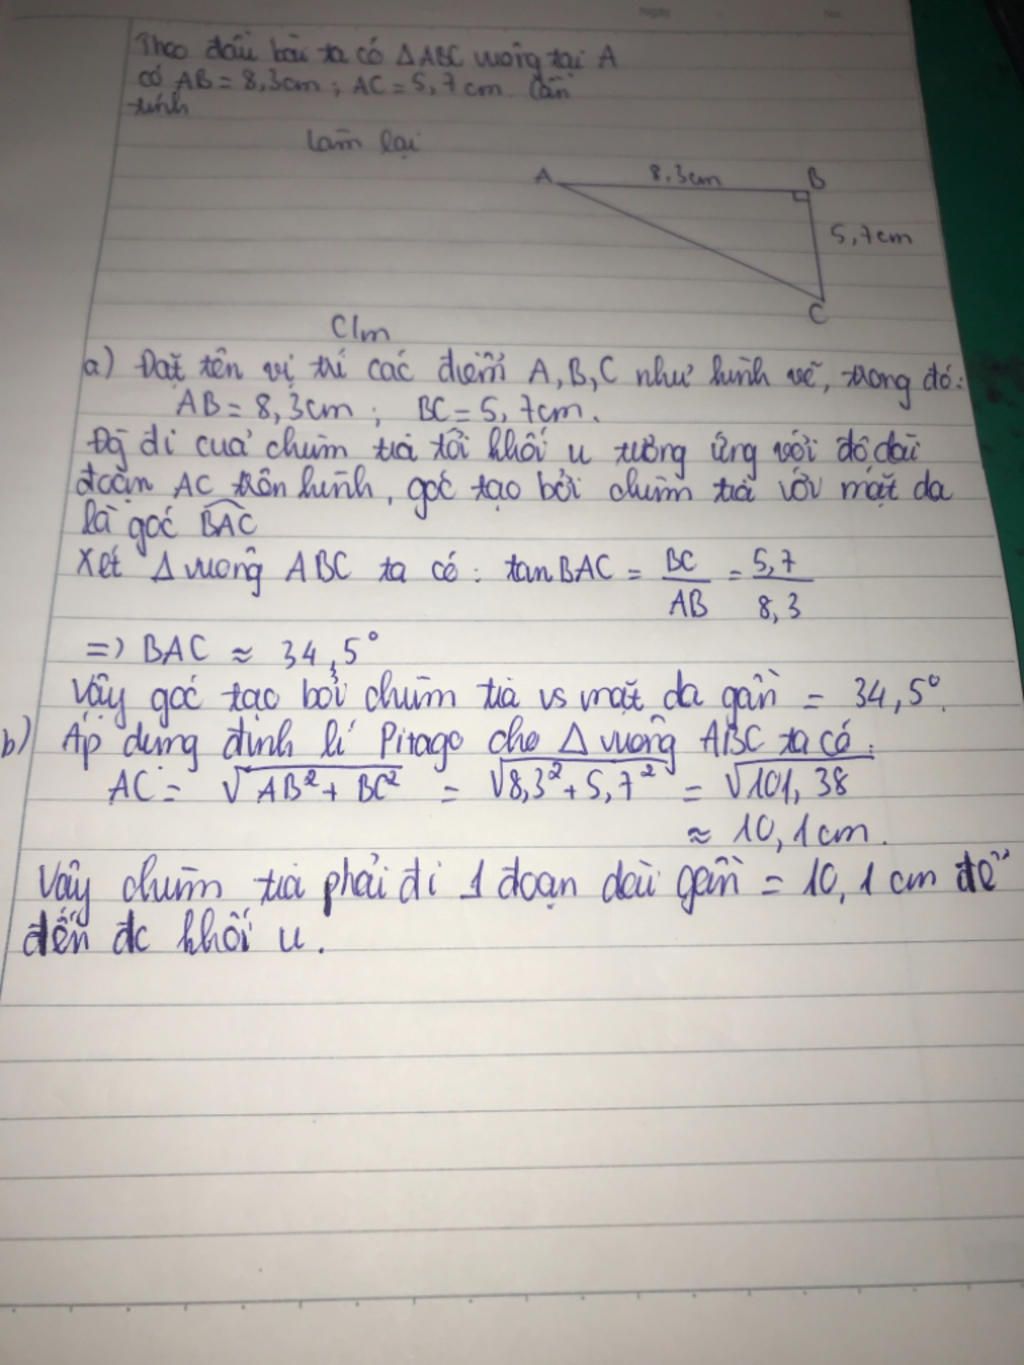 Theo đầu bài ta có ΔABC vuông tại A
có AB = 8,3cm; AC = 5,7cm. Cần
tính
Làm lại
A 8,3cm B
5,7cm
C
C/m
a) Đặt tên vị trí các điểm A, B, C như hình vẽ, trong đó:
AB = 8,3cm; BC = 5,7cm.
Độ đi cuả chùm tia tới khối u tương ứng với độ dài
đoạn AC trên hình, góc tạo bởi chùm tia với mặt da
là góc BAC
Xét Δ vuông ABC ta có: tanBAC = BC/AB = 5,7/8,3
=> BAC ≈ 34,5°
Vậy góc tạo bởi chùm tia vs mặt da gần = 34,5°.
b) Áp dụng định lí Pitago cho Δ vuông ABC ta có:
AC = √AB²+BC² = √8,3²+5,7² = √101,38
≈ 10,1cm.
Vậy chùm tia phải đi 1 đoạn dài gần = 10,1 cm để
đến đc khối u.